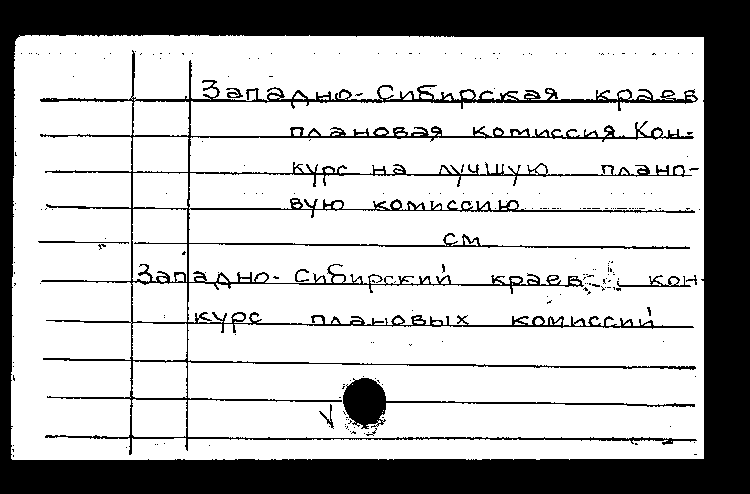 Западно-Сибирская краев
плановая комиссия. Кон-
курс на лучшую плано-
вую комиссию
см
Западно-Сибирский краев кон-
курс плановых комиссий
V